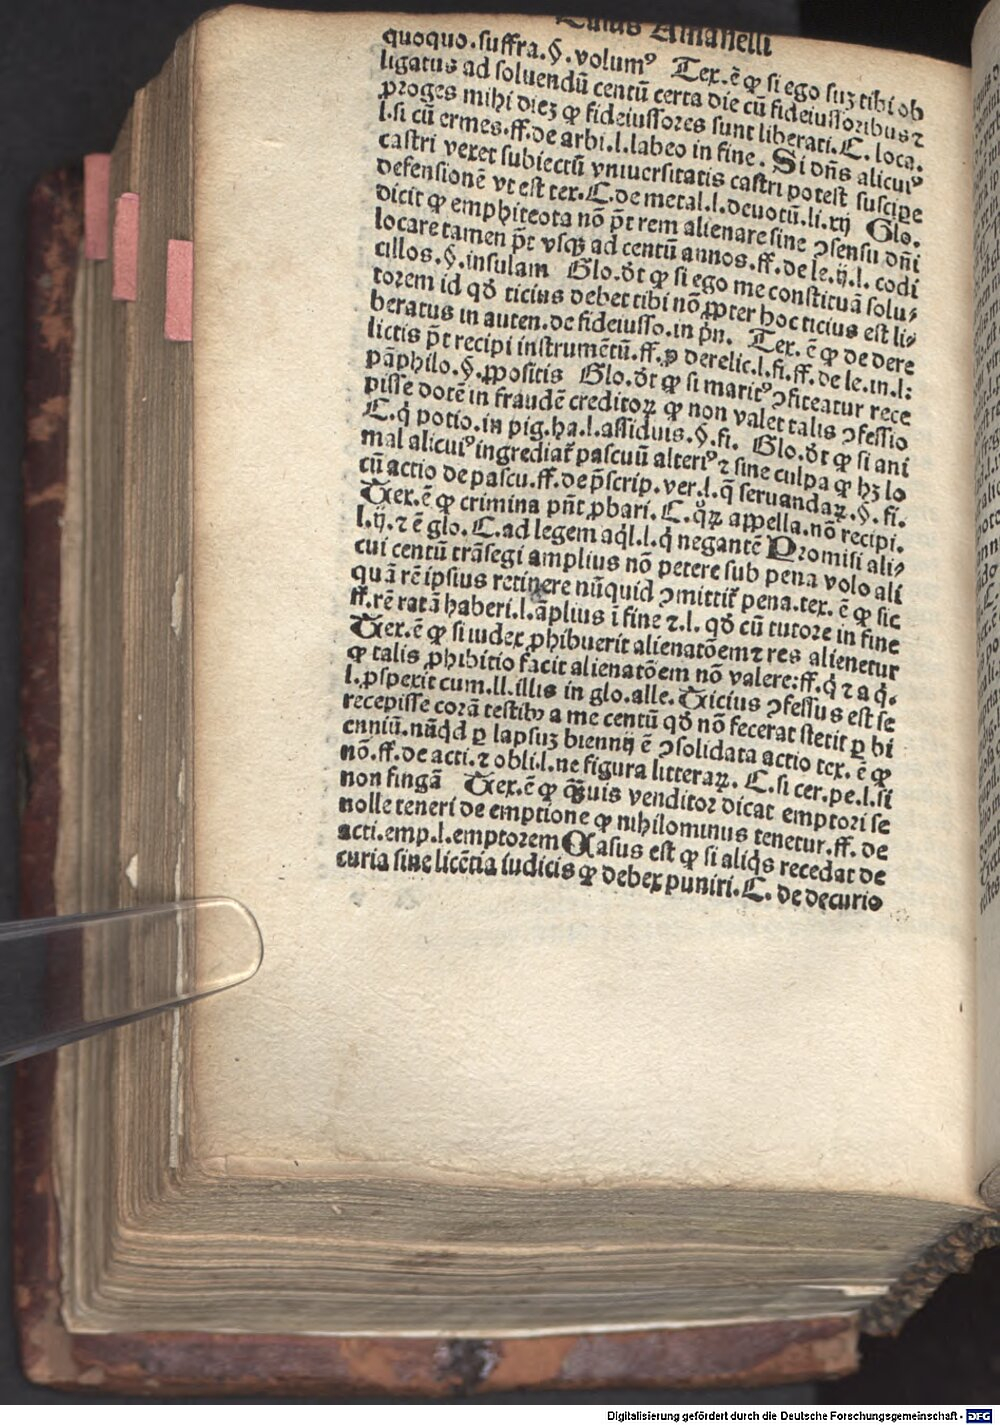 Amanelli
quoquo.suffra.§.volumꝰ Tex.ē ꝙ si ego suꝫ tibi ob
ligatus ad soluendū centū certa die cū fideiussoribus ⁊
ꝓroges mihi dieꝫ ꝙ fideiussores sunt liberati.C. loca.
l.si cū ermes.ff.de arbi.l.labeo in fine. Si dñs alicuiꝰ
castri vexet subiectū vniuersitatis castri potest suscipe
defensionē vt est tex.C.de metal.l.deuotū.li.xij Glo.
dicit ꝙ emphiteota nō p̄t rem alienare sine ↄsensu dñi
locare tamen p̄t vsqꝫ ad centū annos.ff.de le.ij.l. codi
cillos.§.insulam Glo.dt ꝙ si ego me constituā solu⸗
torem id qd̓ ticius debet tibi nō ꝓpter hoc ticius est li⸗
beratus in auten.de fideiusso.in pn̄. Tex. ē ꝙ de dere
lictis p̄t recipi instrumētū.ff.ꝓ derelic.l.fi.ff.de le.in.l:
pāphilo.§.ꝓpositis Glo.dt ꝙ si maritꝰ ↄfiteatur rece
pisse dotē in fraudē creditoꝝ ꝙ non valet talis ↄfessio
C.q̇ potio.in pig.ha.l.assiduis.§.fi. Glo.dt ꝙ si ani
mal alicuiꝰ ingrediat᷑ pascuū alteriꝰ ⁊ sine culpa ꝙ hꝫ lo
cū actio de pascu.ff.de p̄scrip.ver.l.q̄ seruandaꝝ.§.fi.
Tex.ē ꝙ crimina pn̄t ꝓbari.C.q̊ꝝ appella.nō recipi.
l.ij.⁊ ē glo.C.ad legem aql̇.l.q̇ negantē Promisi ali⸗
cui centū trāsegi amplius nō petere sub pena volo ali
quā rē ipsius retinere nūquid ↄmittit᷑ pena.tex. ē ꝙ sic
ff.rē ratā haberi.l.āplius ī fine ⁊.l. qd̓ cū tutore in fine
Tex.ē ꝙ si iudex ꝓhibuerit alienatōem ⁊ res alienetur
ꝙ talis ꝓhibitio facit alienatōem nō valere:ff.q̇ ⁊ a q̇.
l.ꝓspexit cum.ll.illis in glo.alle. Ticius ↄfessus est se
recepisse corā testibꝰ a me centū qd̓ nō fecerat stetit ꝑ bi
enniū.nūqd̓ ꝑ lapsuꝫ biennij ē ↄsolidata actio tex. ē ꝙ
nō.ff.de acti.⁊ obli.l.ne figura litteraꝝ. C.si cer.pe.l.si
non fingā Tex.ē ꝙ q̄uis venditor dicat emptori se
nolle teneri de emptione ꝙ nihilominus tenetur.ff. de
acti.emp.l.emptorem Casus est ꝙ si aliqṡ recedat de
curia sine licētia iudicis ꝙ debeꝫ puniri.C. de decurio
Digitalisierung gefördert durch die Deutsche Forschungsgemeinschaft - DFG